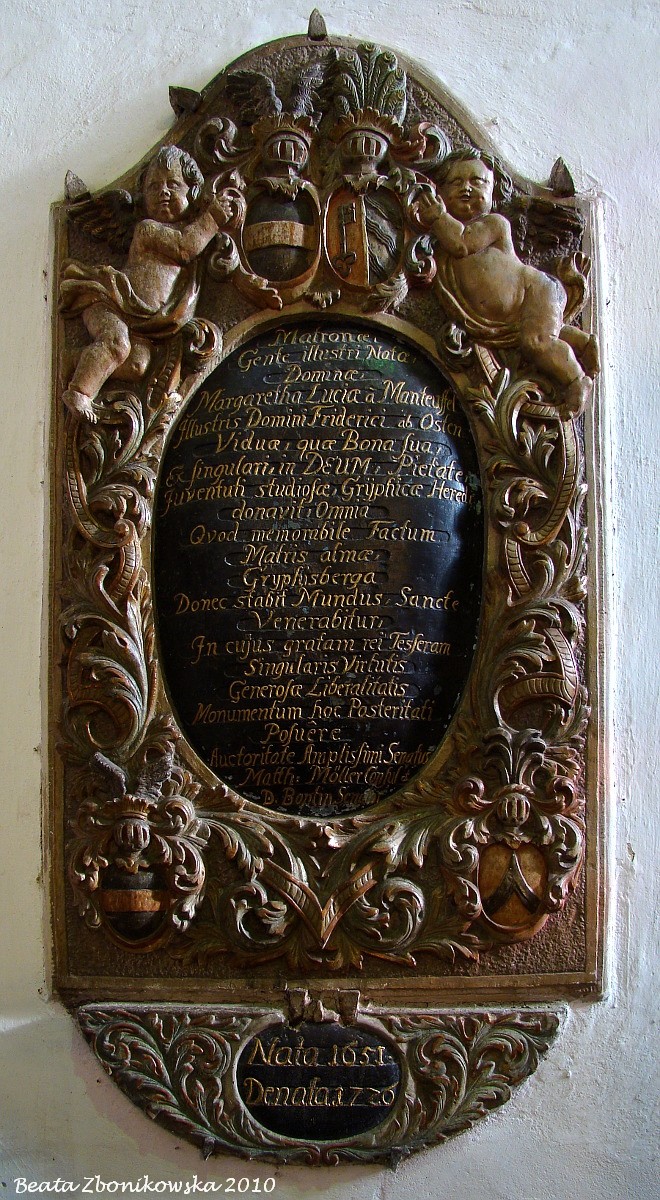 Matronæ
Gente illustri Natæ
Dominæ
Margarethæ Luciæ a Manteuffel
Illustris Domini Friderici ab Osten
Viduæ, quæ Bona sua,
Ex singulari, in DEUM, Pietate
Juventuti studiosæ, Gryphicæ Heredi
donavit, Omnia
Qvod memorabile Factum
Matris almæ
Gryphisberga
Donec stabit Mundus, Sancte
Venerabitur,
In cujus gratam rei Tesseram
Singularis Virtutis
Generosæ Liberalitatis
Monumentum hoc Posteritati
Posuere
Auctoritate Amplissimi Senatus
Matth: Möller Consul &
D. Bontin
Nata 1651
Denata 1726
Beata Zbonikowska 2010